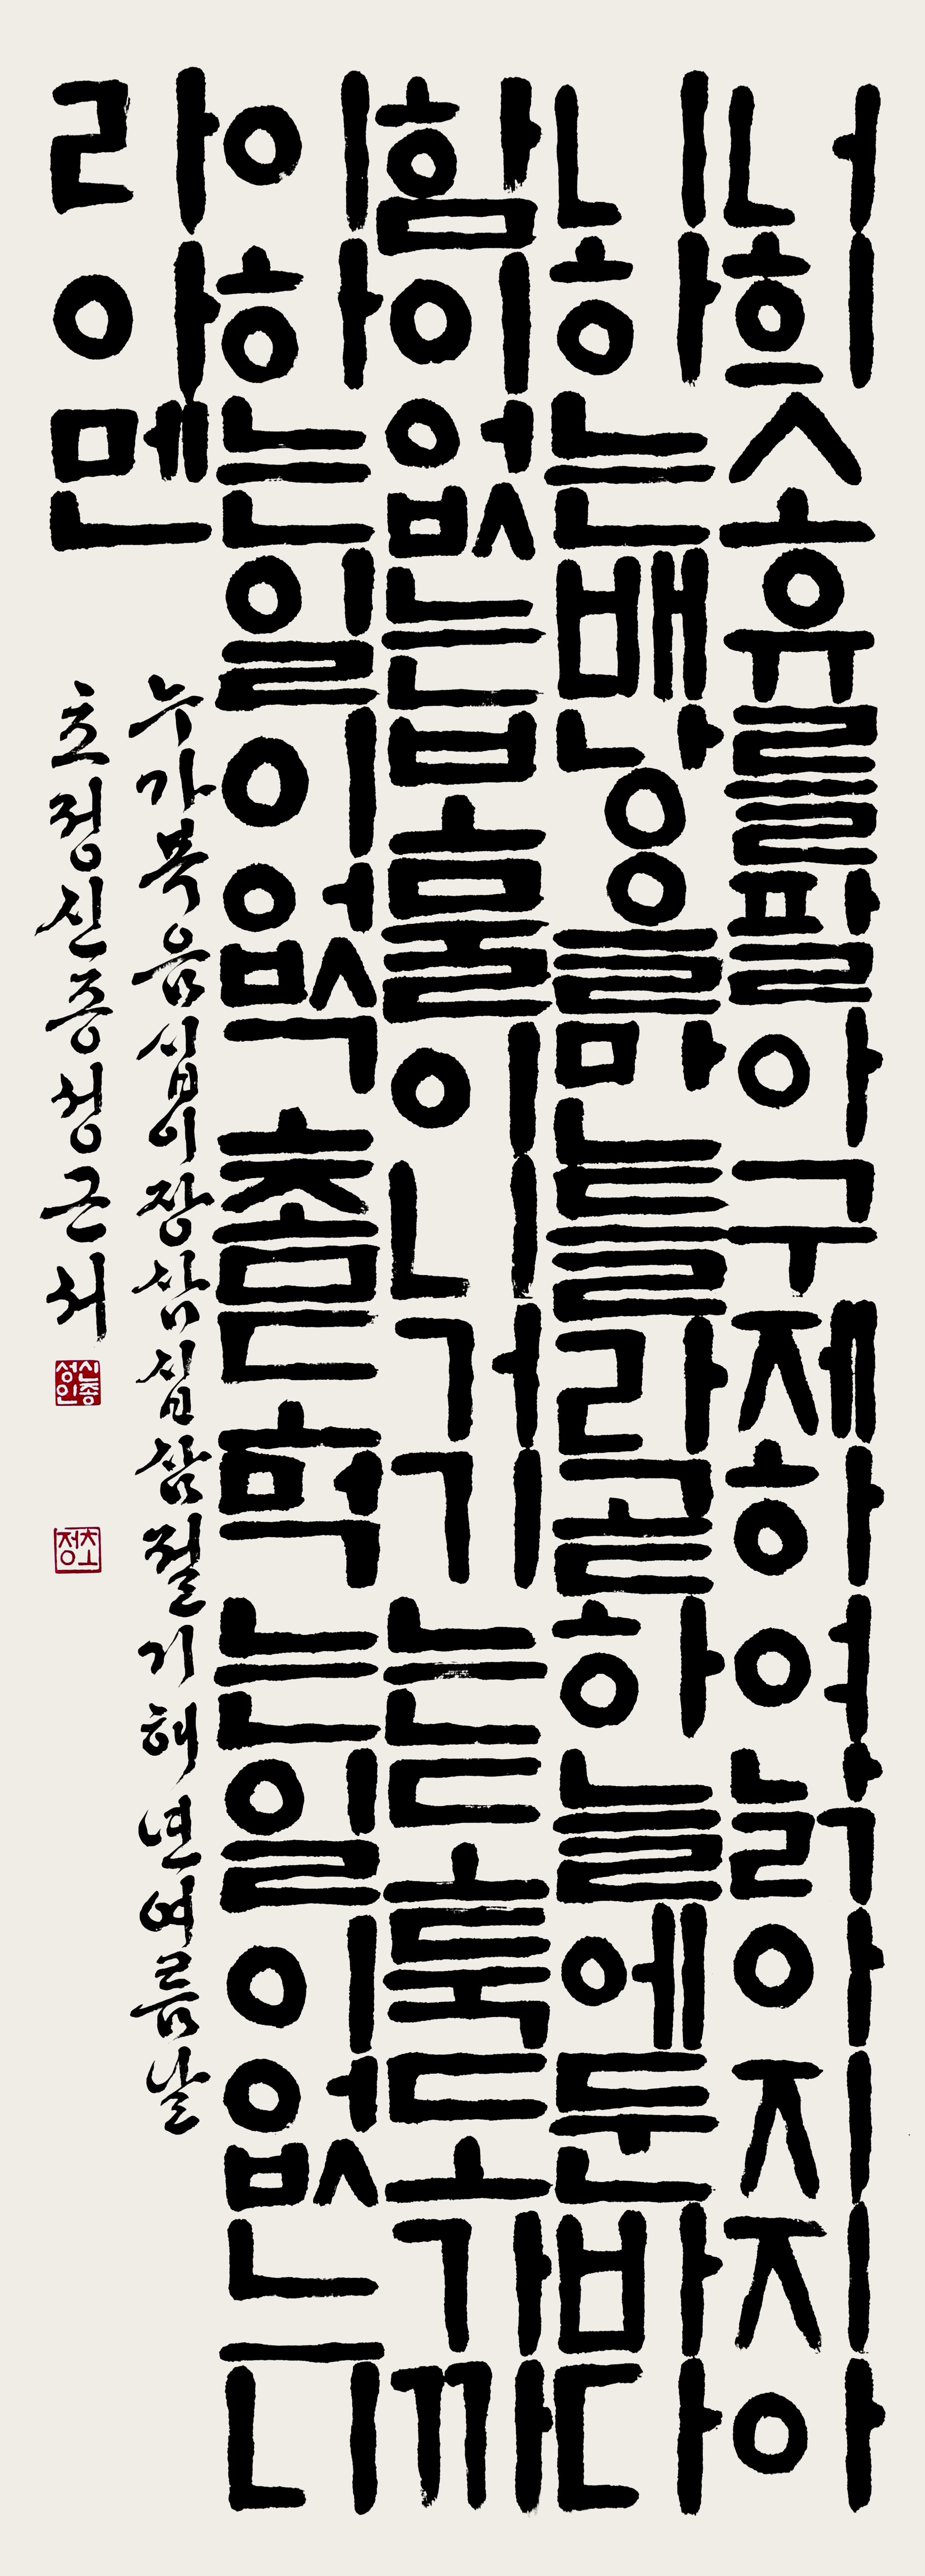 너희소유를팔아구제하여낡아지지아
니하는배낭을만들라곧하늘에둔바다
함이없는보물이니거기는도둑도가까
이하는일이없고좀도먹는일이없느니
라아멘
누가복음십이장삼십삼절기해년여름날
초정신종성근서
신종성인
초정